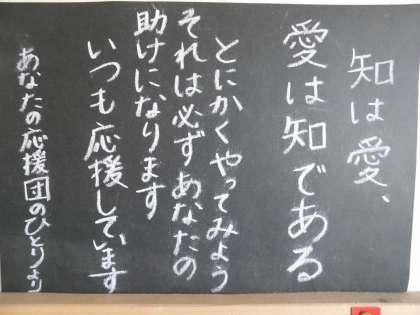 知は愛、
愛は知である
とにかくやってみよう
それは必ずあなたの
助けになります
いつも応援しています
あなたの応援団のひとりより